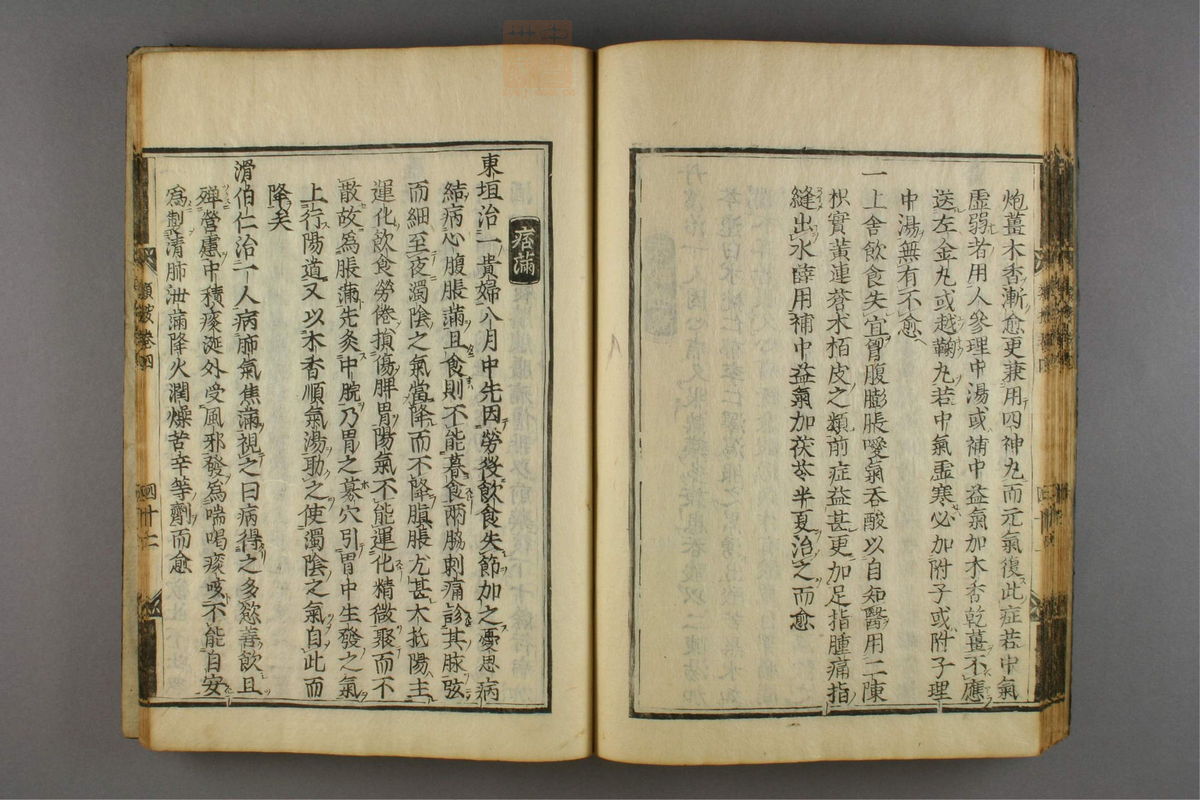 炮薑木香漸愈更兼用四神丸而元氣復此症若中氣
虛弱者用人參理中湯或補中益氣加木香乾薑不應
送左金丸或越鞠丸若中氣虛寒必加附子或附子理
中湯無有不愈
一上舍飲食失宜胷腹膨脹噯氣吞酸以自知醫用二陳
枳實黃連蒼术栢皮之類前症益甚更加足指腫痛指
縫出水薛用補中益氣加茯苓半夏治之而愈
痞滿
東垣治一貴婦八月中先因勞役飲食失節加之憂思病
結病心腹脹滿且食則不能暮食兩脇刺痛診其脉弦
而細至夜濁陰之氣當降而不降䐜脹尤甚大抵陽主
運化飲食勞倦損傷脾胃陽氣不能運化精微聚而不
散故爲脹滿先灸中脘乃胃之募穴引胃中生發之氣
上行陽道又以木香順氣湯助之使濁陰之氣自此而
降矣
滑伯仁治一人病肺氣焦滿視之曰病得之多慾善飲且
殫營慮中積痰涎外受風邪發爲喘喝痰咳不能自安
爲製清肺泄滿降火潤燥苦辛等劑而愈
類按卷四
四十二